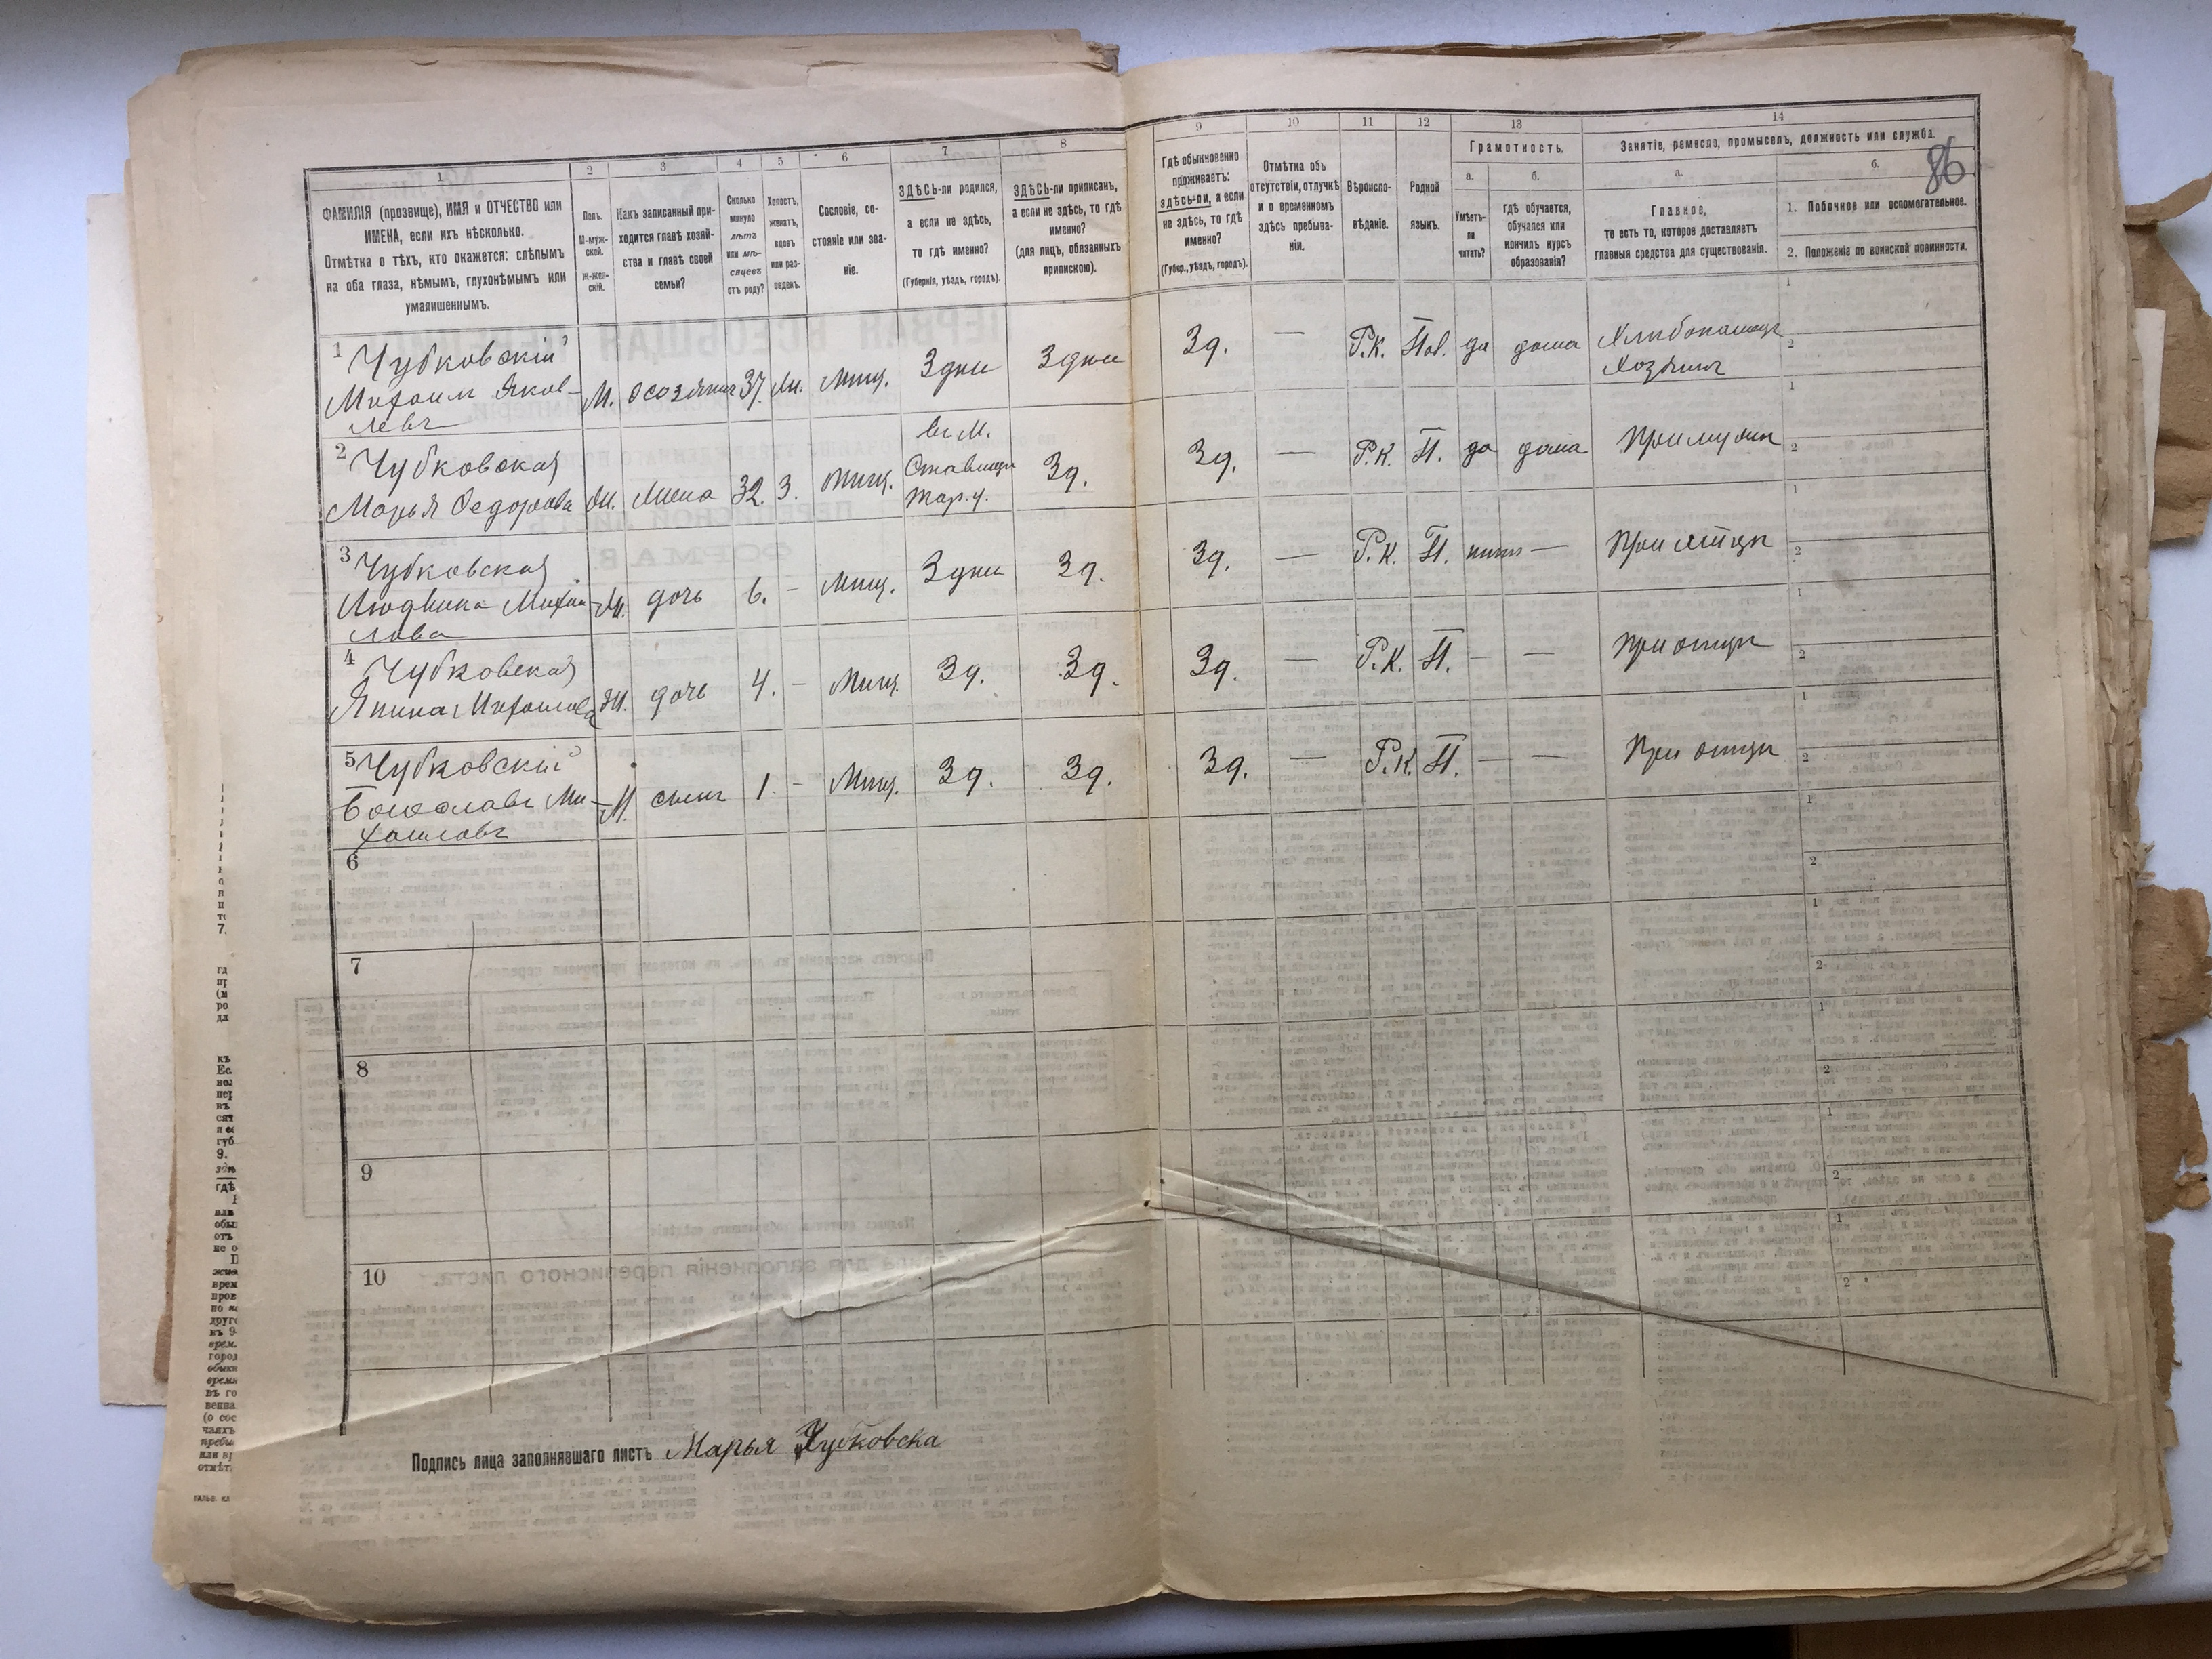 86
1
2
3
4
5
6
7
8
9
10
11
12
13
14
ФАМИЛІЯ (прозвище), ИМЯ и ОТЧЕСТВО или
ИМЕНА, если ихъ нѣсколько.
Отмѣтка о тѣхъ, кто окажется: слѣпымъ
на оба глаза, нѣмымъ, глухонѣмымъ или
умалишеннымъ.
Полъ.
М-муж-
ской.
Ж-жен-
скій.
Какъ записанный при-
ходится главѣ хозяй-
ства и главѣ своей
семьи?
Сколько
минуло
лѣтъ
или мѣ-
сяцевъ
отъ роду?
Холостъ,
женатъ,
вдовъ
или раз-
веденъ.
Сословіе, со-
стояніе или зва-
ніе.
ЗДѢСЬ-ли родился,
а если не здѣсь,
то гдѣ именно?
(Губернія, уѣздъ, городъ).
ЗДѢСЬ-ли приписанъ,
а если не здѣсь, то гдѣ
именно?
(для лицъ, обязанныхъ
припискою).
Гдѣ обыкновенно
проживаетъ:
здѣсь-ли, а если
не здѣсь, то гдѣ
именно?
(Губер., уѣздъ, городъ).
Отмѣтка объ
отсутствіи, отлучкѣ
и о временномъ
здѣсь пребыва-
ніи.
Вѣроиспо-
вѣданіе.
Родной
языкъ.
Грамотность.
а.
Умѣетъ-
ли
читать?
б.
гдѣ обучается,
обучался или
кончилъ курсъ
образованія?
Занятіе, ремесло, промыселъ, должность или служба.
а.
Главное,
то есть то, которое доставляетъ
главныя средства для существованія.
б.
1. Побочное или вспомогательное.
2. Положеніе по воинской повинности.
1 Чубковскій
Михаил Яков-
левъ
М.
хозяинъ
37.
Мѣщ.
Здѣсь
Здѣсь
Зд.
—
Р.К.
Пол.
да
дома
Хлѣбопашецъ
Хозяинъ
2 Чубковская
Марья Федорова
Ж.
жена
32.
З.
Мѣщ.
въ М.
Ставищи
Тар. у.
Зд.
Зд.
—
Р.К.
П.
да
дома
При мужѣ
3 Чубковская
Людвика Михаи-
лова
Ж.
дочь
6.
–
Мѣщ.
Здѣсь
Зд.
Зд.
—
Р.К.
П.
нѣтъ
—
При отцѣ
4 Чубковская
Янина Михаилова
Ж.
дочь
4.
–
Мѣщ.
Зд.
Зд.
Зд.
—
Р.К.
П.
—
—
При отцѣ
5 Чубковскій
Богославъ Ми-
хаиловъ
М.
сынъ
1.
–
Мѣщ.
Зд.
Зд.
Зд.
—
Р.К.
П.
—
—
При отцѣ
6
7
8
9
10
Подпись лица заполнявшаго листъ Марья Чубковска